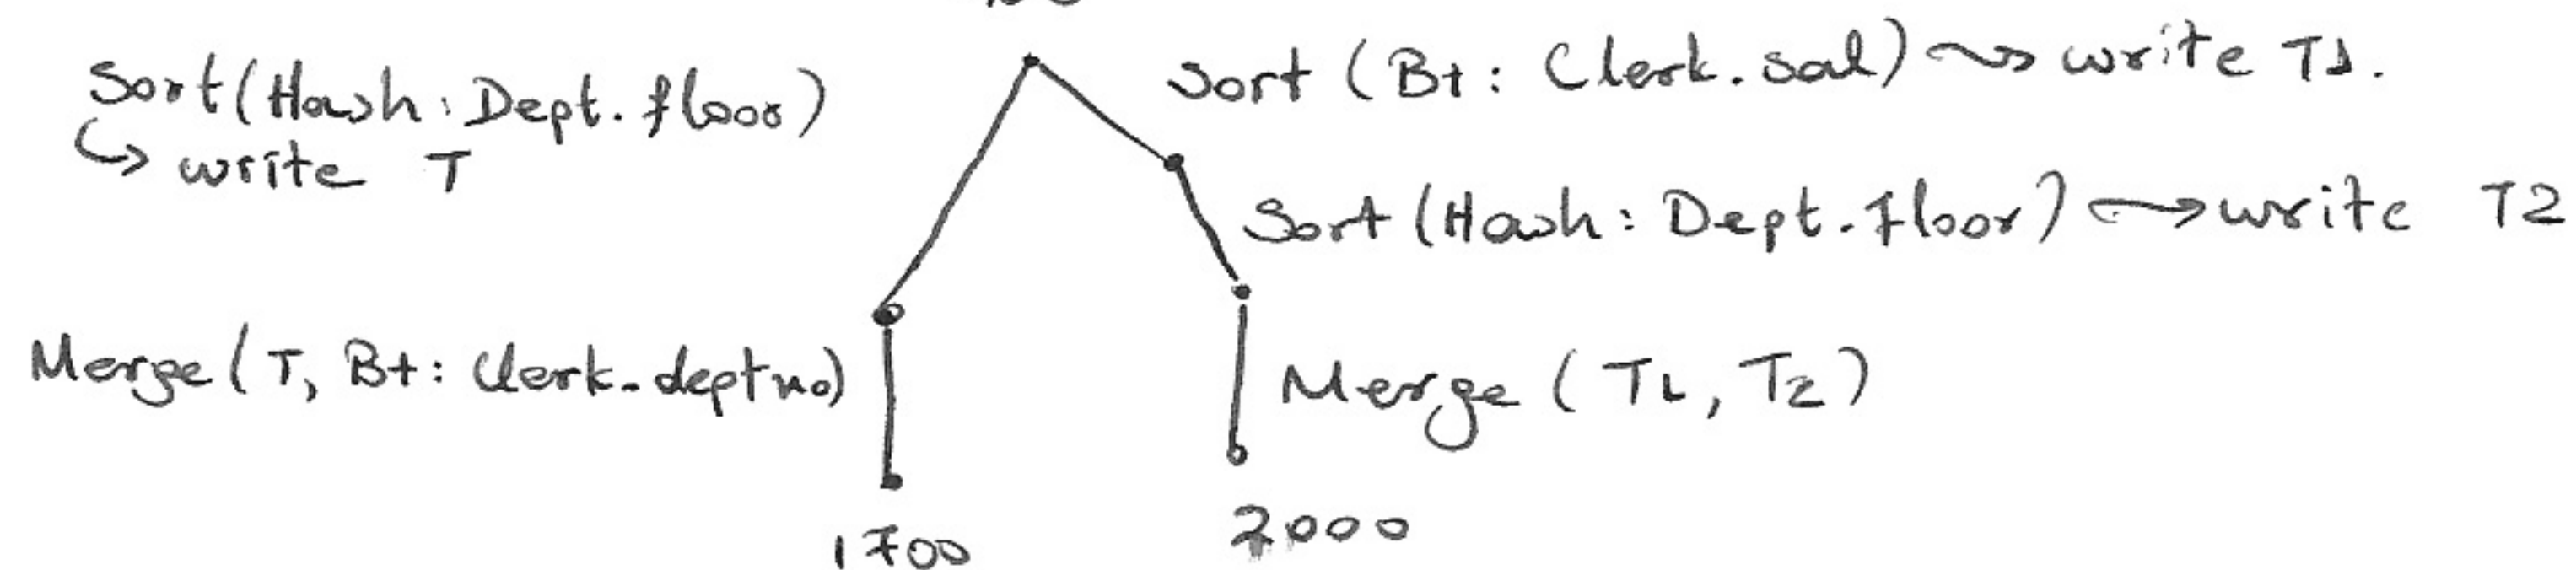 Sort (Hash: Dept. floor)
↳ write T
Sort (B+: Clerk. sal) ⤳ write T1.
Sort (Hash: Dept. floor) → write T2
Merge (T, B+: Clerk. deptno)
Merge (T1, T2)
1700
2000